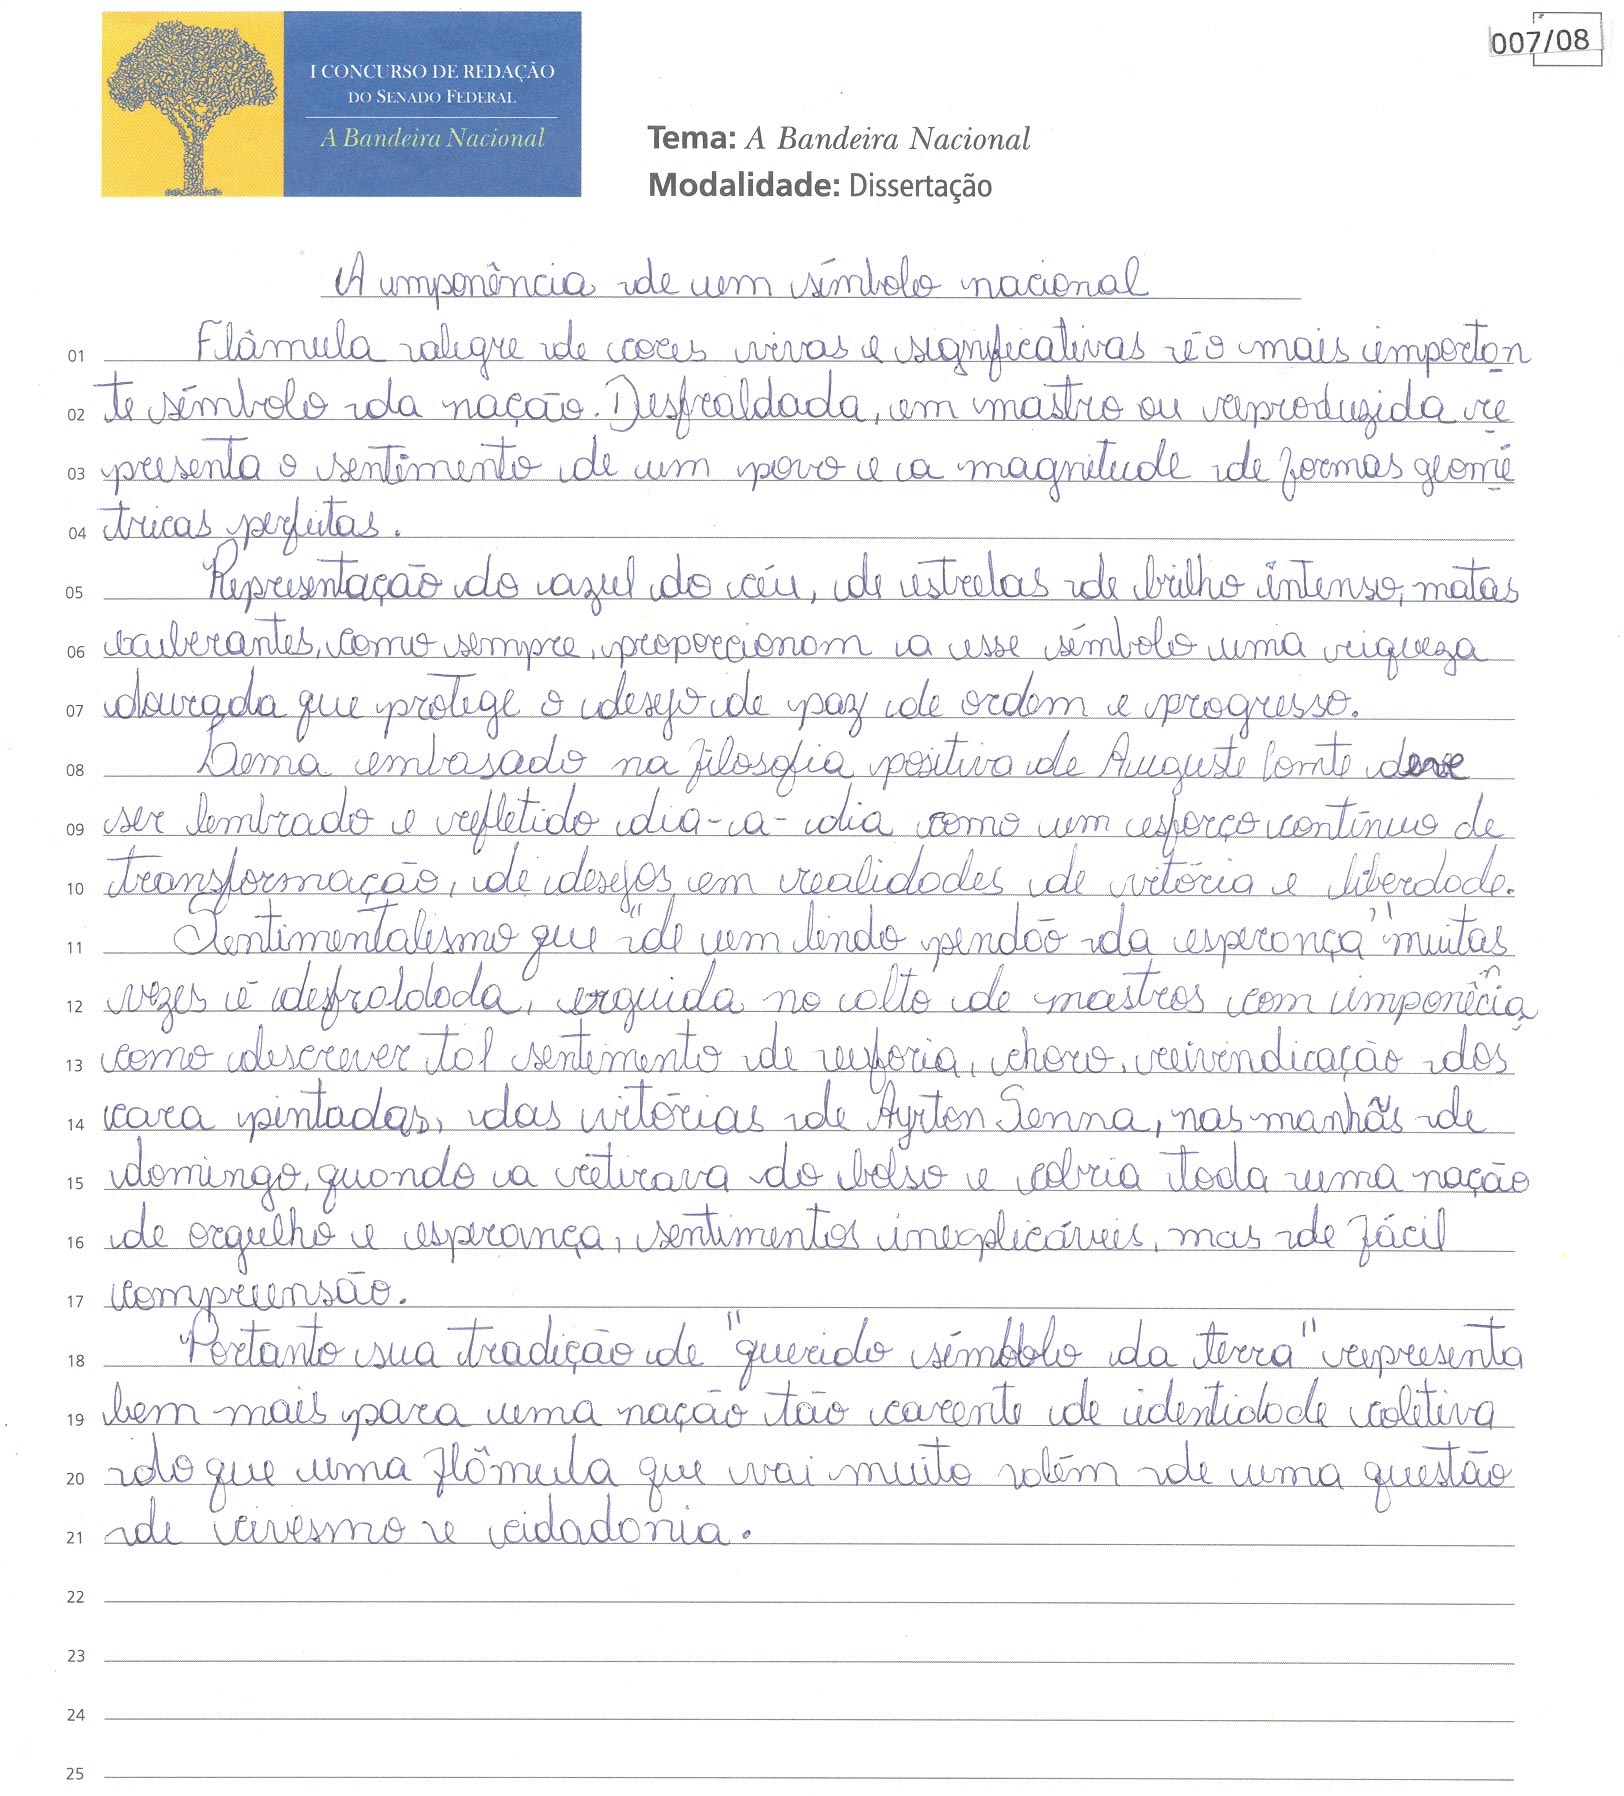 007/08
I CONCURSO DE REDAÇÃO
DO SENADO FEDERAL
A Bandeira Nacional
Tema: A Bandeira Nacional
Modalidade: Dissertação
A imponência de um símbolo nacional
01 Flâmula alegre de cores vivas e significativas é o mais importan
02 te símbolo da nação. Desfraldada, em mastro ou reproduzida re
03 presenta o sentimento de um povo e a magnitude de formas geomé
04 tricas perfeitas.
05 Representação do azul do céu, de estrelas de brilho intenso, matas
06 exuberantes, como sempre, proporcionam a esse símbolo uma riqueza
07 dourada que protege o desejo de paz de ordem e progresso.
08 Lema embasado na filosofia positiva de Auguste Comte deve
09 ser lembrado e refletido dia-a-dia como um esforço contínuo de
10 transformação, de desejos em realidades de vitória e liberdade.
11 Sentimentalismo que "de um lindo pendão da esperança" muitas
12 vezes é desfraldada, erguida no alto de mastros com imponência,
13 como descrever tal sentimento de euforia, choro, reivindicação dos
14 cara pintadas, das vitórias de Ayrton Senna, nas manhãs de
15 domingo, quando a retirava do bolso e cobria toda uma nação
16 de orgulho e esperança, sentimentos inexplicáveis, mas de fácil
17 compreensão.
18 Portanto sua tradição de "querido símbolo da terra" representa
19 bem mais para uma nação tão carente de identidade coletiva
20 do que uma flâmula que vai muito além de uma questão
21 de civismo e cidadania.
22
23
24
25